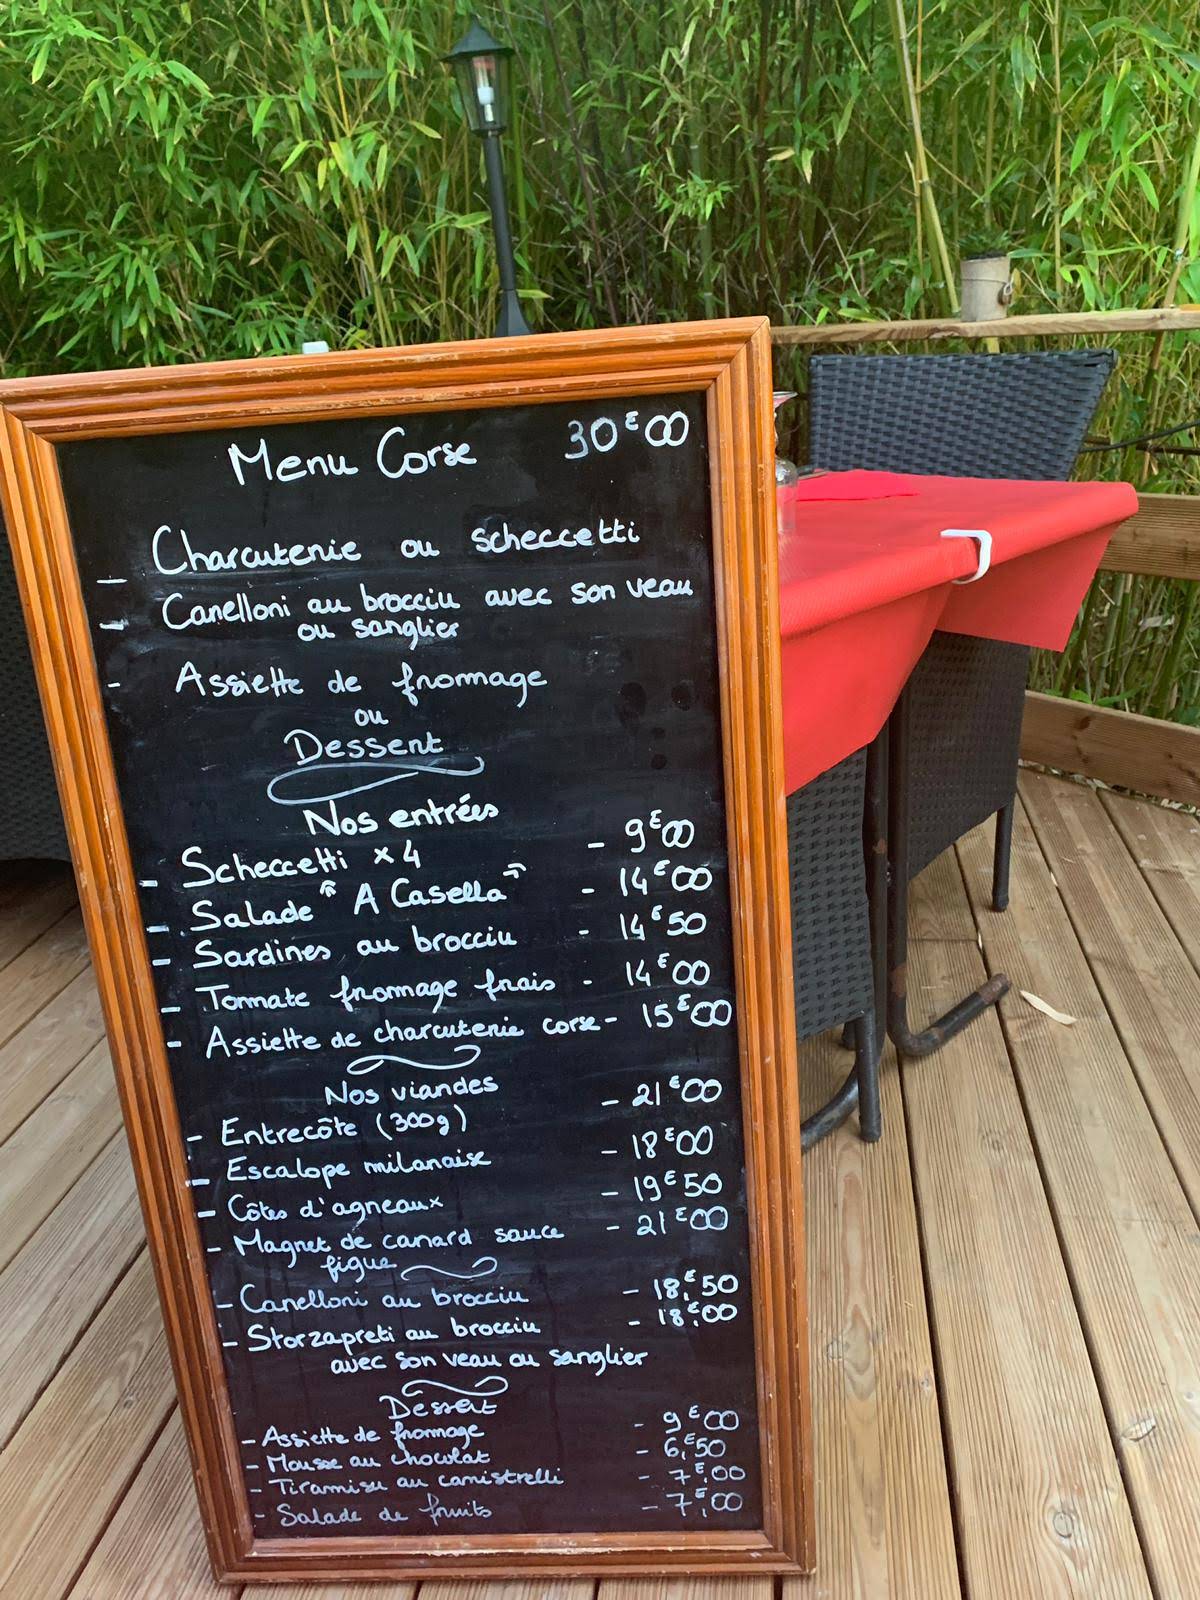 Menu Corse 30€00
- Charcuterie ou scheccetti
- Canelloni au brocciu avec son veau
ou sanglier
- Assiette de fromage
ou
Dessert
Nos entrées
- Scheccetti x4 - 9€00
- Salade "A Casella" - 14€00
- Sardines au brocciu - 14€50
- Tomate fromage frais - 14€00
- Assiette de charcuterie corse - 15€00
Nos viandes
- Entrecôte (300g) - 21€00
- Escalope milanaise - 18€00
- Côtes d'agneaux - 19€50
- Magret de canard sauce - 21€00
figue
- Canelloni au brocciu - 18€50
- Storzapreti au brocciu - 18€00
avec son veau ou sanglier
Dessert
- Assiette de fromage - 9€00
- Mousse au chocolat - 6€50
- Tiramisu au canistrelli - 7€00
- Salade de fruits - 7€00